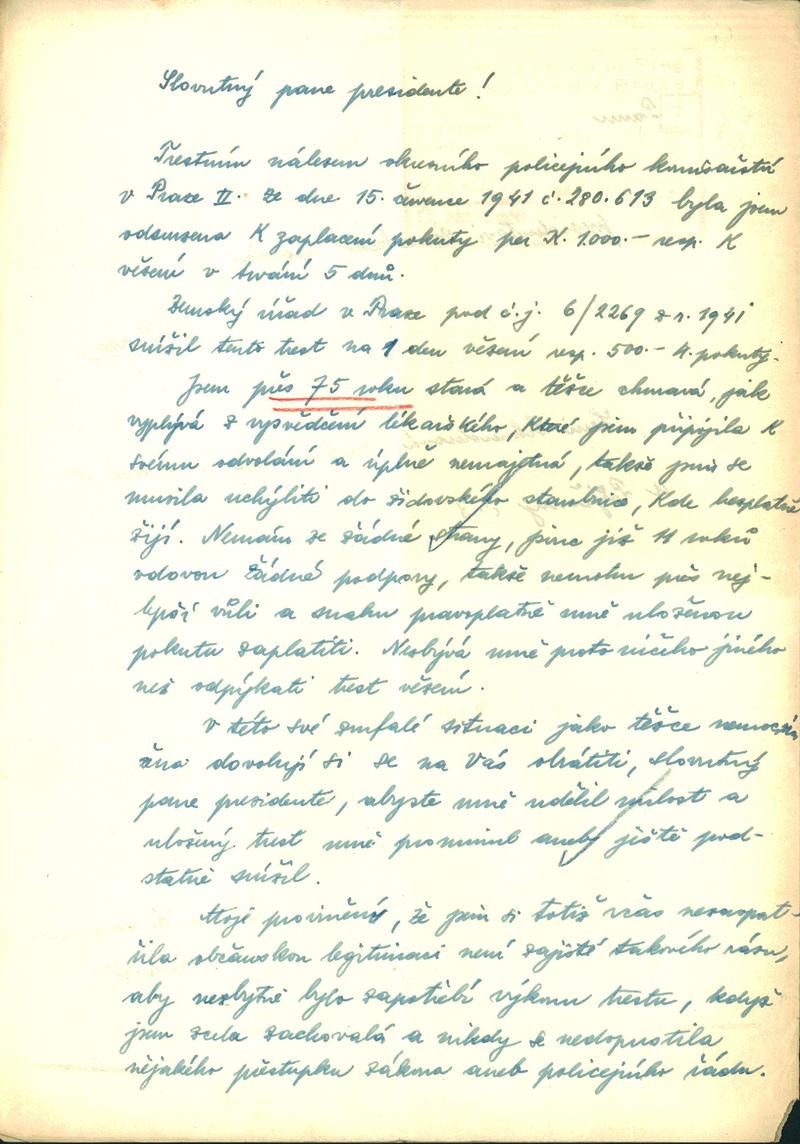 Slovutný pane presidente!
Trestním nálezem okresního policejního komisařství
v Praze II. ze dne 15. července 1941 č. 280.613 byla jsem
odsouzena k zaplacení pokuty per K. 1.000.- resp. k
vězení v trvání 5 dnů.
Zemský úřad v Praze pod č.j. 6/2269 z r. 1941
snížil tento trest na 1 den vězení resp. 500.- K. pokuty.
Jsem přes 75 roku stará a těžce churavá, jak
vyplývá z vysvědčení lékařského, které jsem připojila k
svému odvolání a úplně nemajetná, takže jsem se
musila uchýliti do židovského starobince, kde bezplatně
žiji. Nemám se žádné strany, jsouc již 11 roků
vdovou žádné podpory, takže nemohu přes nej-
lepší vůli a snahu pravoplatně mně uloženou
pokutu zaplatiti. Nezbývá mně proto ničeho jiného
než odpykati trest vězení.
V této své zoufalé situaci jako těžce nemocná
žena dovoluji si se na Vás obrátiti, slovutný
pane presidente, abyste mně udělil milost a
uložený trest mně prominul aneb jistě pod-
statně snížil.
Moje provinění, že jsem si totiž včas neopat-
řila občanskou legitimaci není zajisté takového rázu,
aby nezbytně bylo zapotřebí výkonu trestu, když
jsem zcela zachovalá a nikdy se nedopustila
nějakého přestupku zákona aneb policejního řádu.